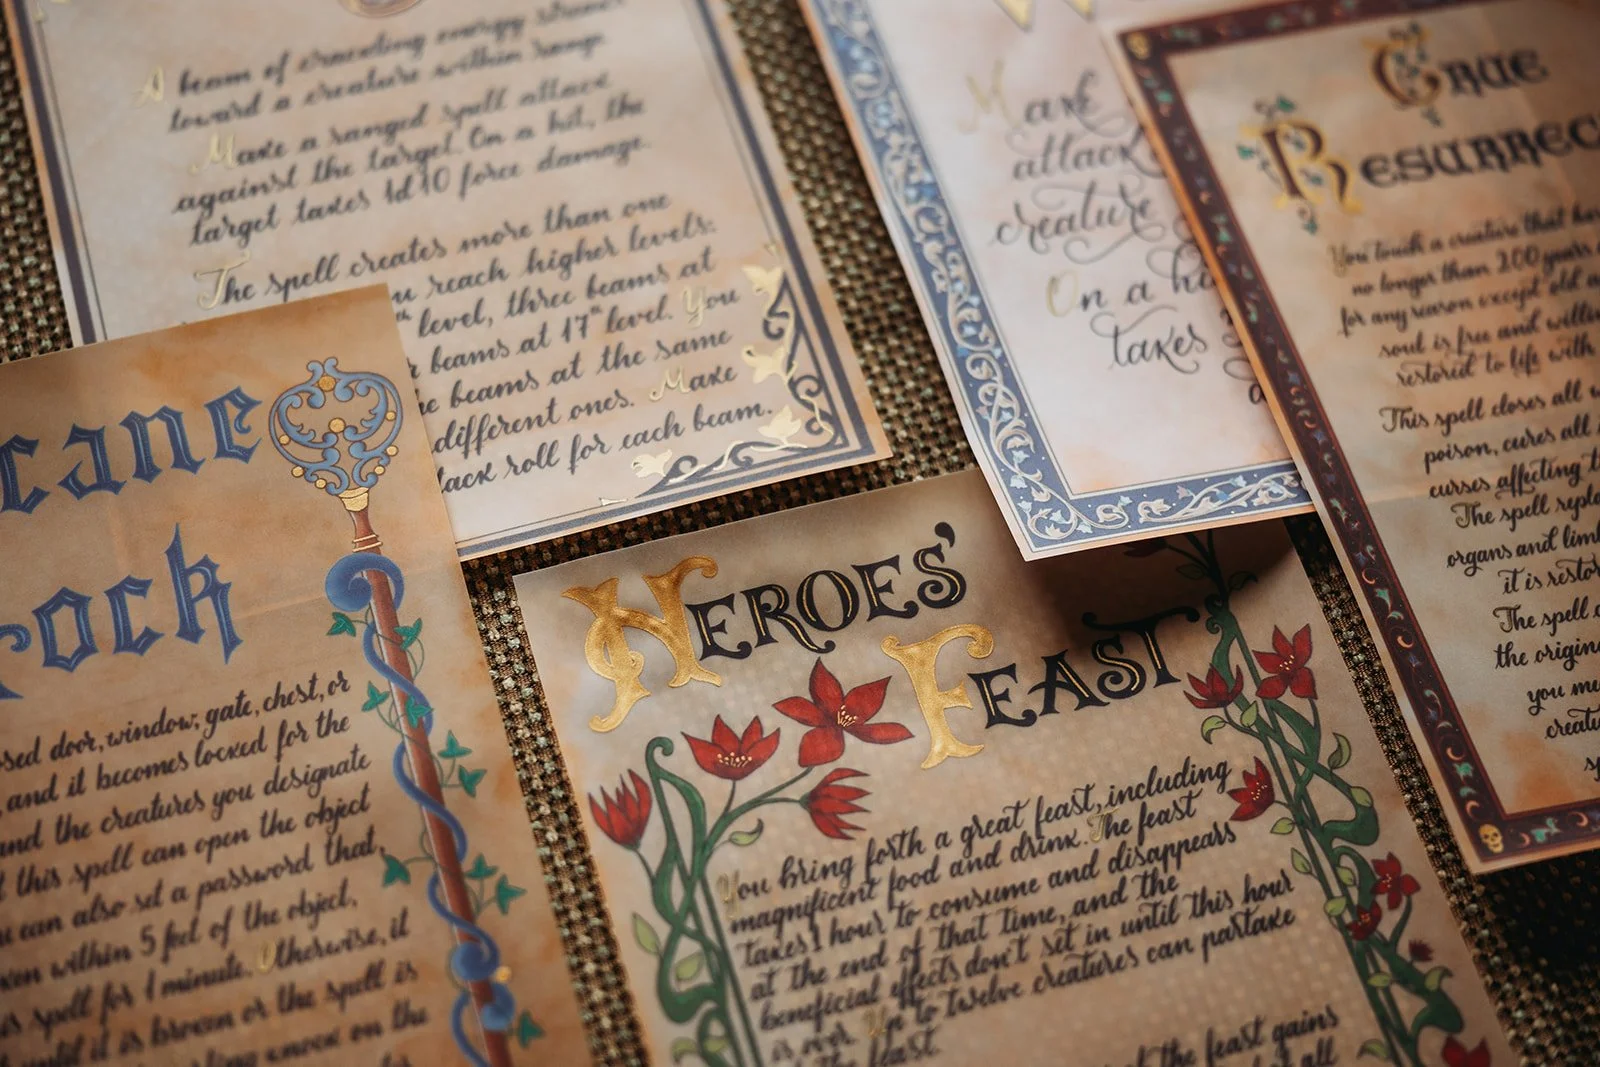 A beam of crackling energy streaks
toward a creature within range
Make a ranged spell attack
against the target. On a hit, the
target takes 1d10 force damage.
The spell creates more than one
reach higher levels:
level, three beams at
beams at 17th level. You
beams at the same
different ones. Make
tack roll for each beam.
Make
attack
creature
On a hi
takes
True
Resurrec
You touch a creature that has
no longer than 200 years
for any reason except old
soul is free and willi
restored to life with
This spell closes all w
poison, cures all
curses affecting t
The spell repla
organs and limb
it is resto
The spell c
the origin
you mu
creatu
cane
rock
sed door, window, gate, chest, or
, and it becomes locked for the
and the creatures you designate
t this spell can open the object
u can also set a password that,
ken within 5 feet of the object,
is spell for 1 minute. Otherwise, it
until it is broken or the spell is
knock on the
Heroes'
Feast
You bring forth a great feast, including
magnificent food and drink. The feast
takes 1 hour to consume and disappears
at the end of that time, and the
beneficial effects don't set in until this hour
is over. Up to twelve creatures can partake
the feast.
the feast gains
all